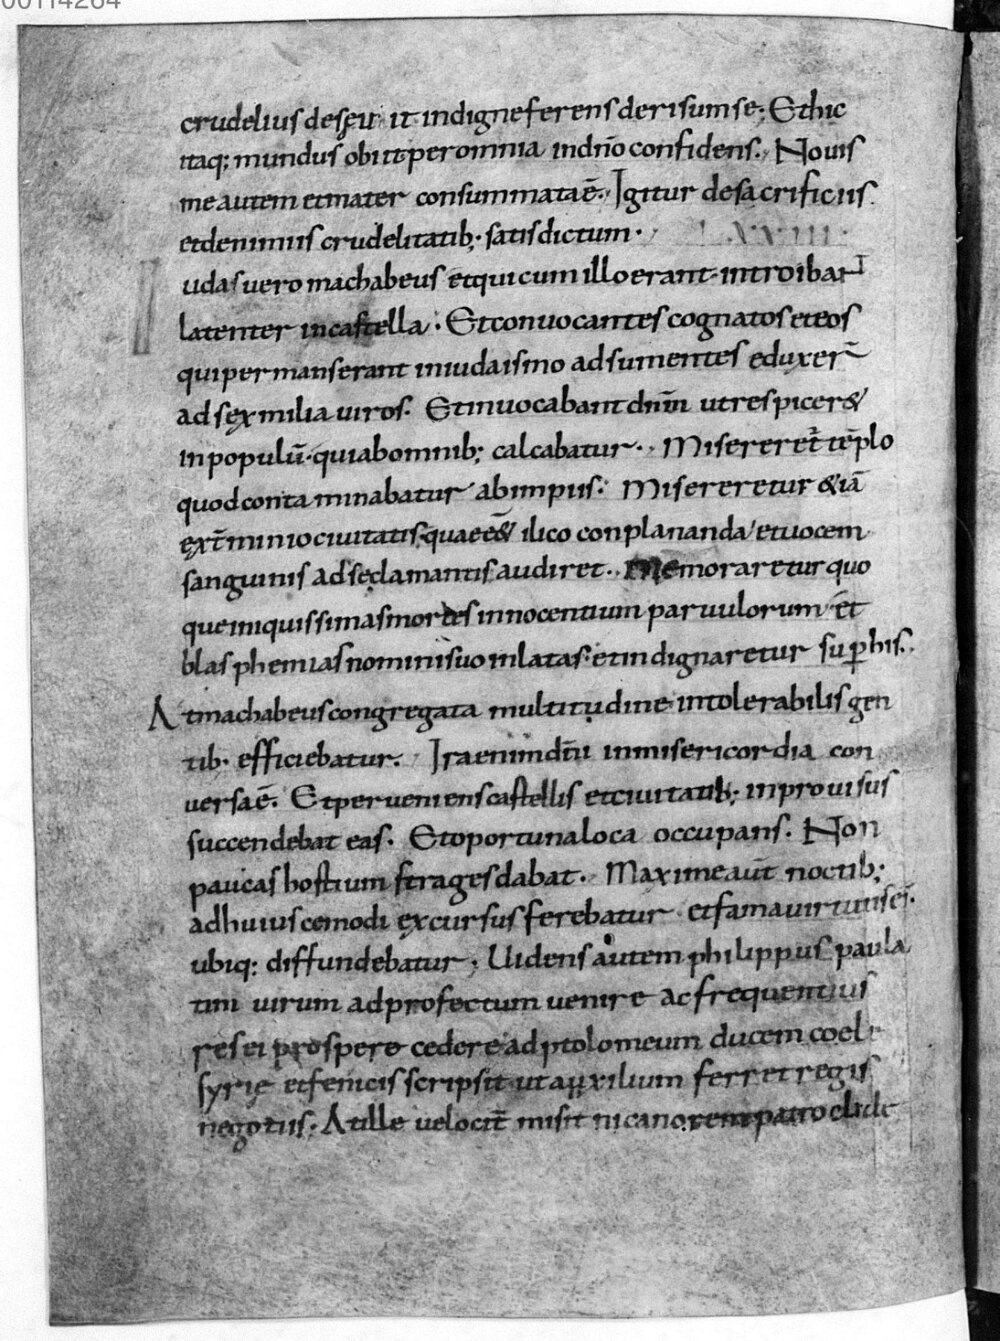 00114264
crudelius deseuiit indigne ferens derisum se; Et hic
itaq; mundus obiit per omnia in dño confidens. Nouis
me autem et mater consummata ē. Igitur de sacrificiis
et de nimiis crudelitatib; satis dictum. XXIII.
Iudas uero machabeus et qui cum illo erant introibant
latenter in castella. Et conuocantes cognatos et eos
qui permanserant in iudaismo adsumentes eduxer̄
ad sex milia uiros. Et inuocabant dnm̄ ut respicer&
in populū quia bomnib; calcabatur. Misereret̄ tēplo
quod contaminabatur ab impiis. Misereretur &iā
ext̄minio ciuitatis quae eē& ilico conplananda et uocem
sanguinis ad sę clamantis audiret. Memoraretur quo
que iniquissimas mortes innocentium paruulorum et
blasphemias nomini suo inlatas. et indignaretur sup his.
At machabeus congregata multitudine intolerabilis gen
tib. efficiebatur. Ira enim dñi in misericordia con
uersa ē. Et perueniens castellis et ciuitatib; inprouisus
succendebat eas. Et oportuna loca occupans. Non
paucas hostium strages dabat. Maxime aūt noctib;
ad huiuscemodi excursus ferebatur et fama uirtutis ei.
ubiq; diffundebatur; Uidens autem philippus paula
tim uirum ad profectum uenire ac frequentius
res ei prospere cedere ad ptolomeum ducem coele
syrię et fenicis scripsit ut auxilium ferret regis
negotiis. At ille uelocit̄ misit nicanorem patrocli de